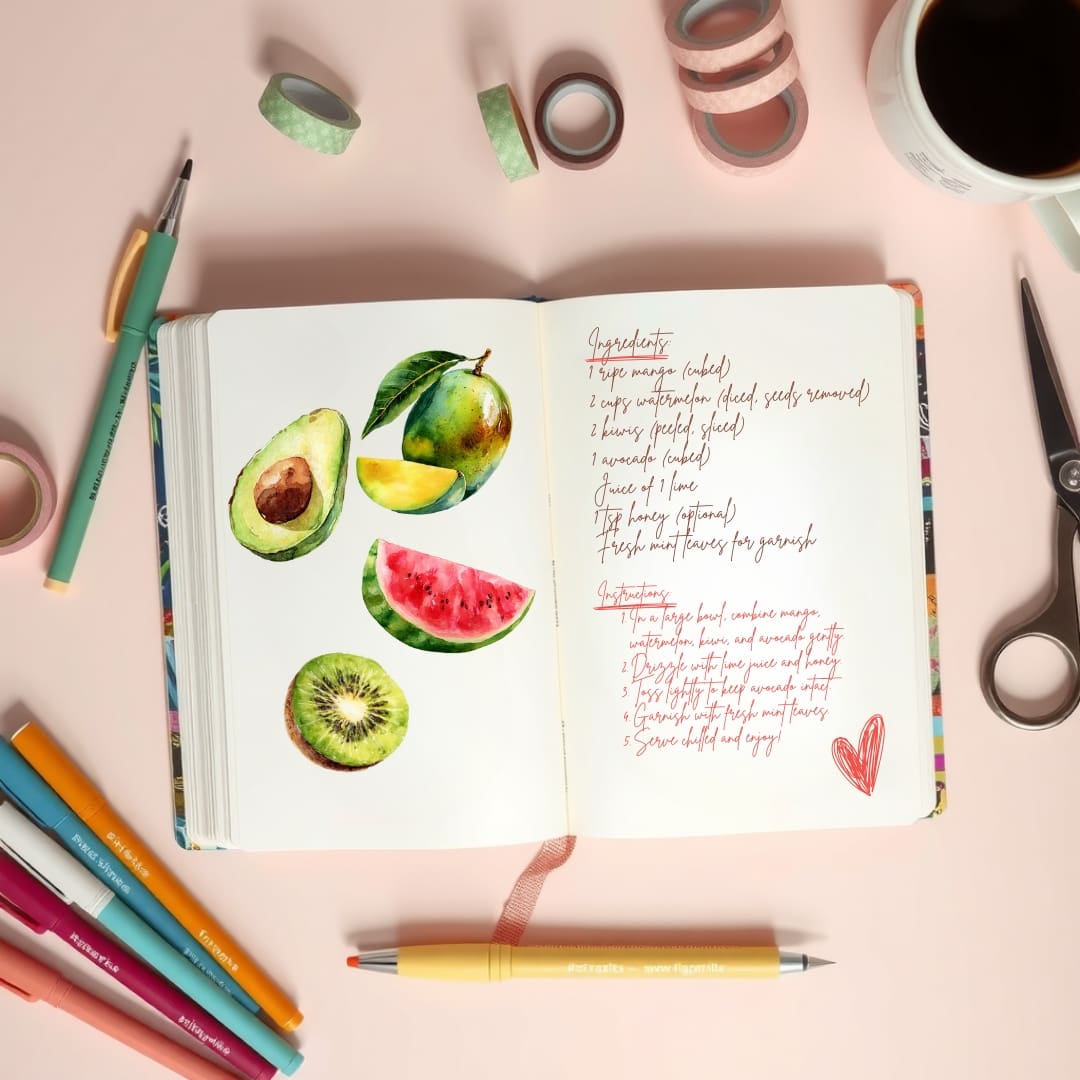 Ingredients:
1 ripe mango (cubed)
2 cups watermelon (diced, seeds removed)
2 kiwis (peeled, sliced)
1 avocado (cubed)
Juice of 1 lime
1 tsp honey (optional)
Fresh mint leaves for garnish
Instructions:
1. In a large bowl, combine mango,
watermelon, kiwi, and avocado gently.
2. Drizzle with lime juice and honey.
3. Toss lightly to keep avocado intact.
4. Garnish with fresh mint leaves.
5. Serve chilled and enjoy!